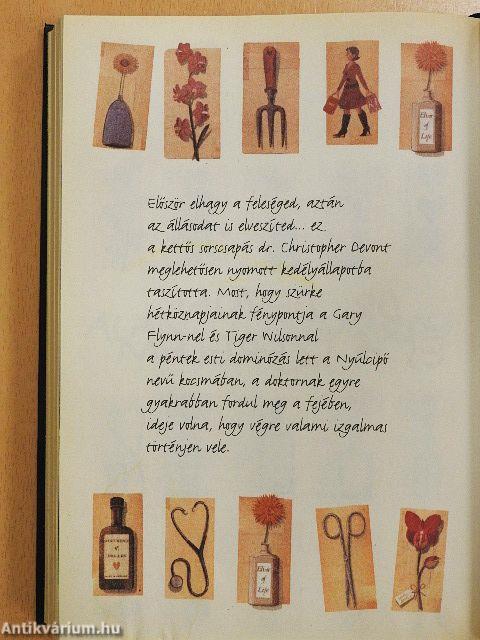 Elixir
of
Life
Először elhagy a feleséged, aztán
az állásodat is elveszíted... ez
a kettős sorscsapás dr. Christopher Devont
meglehetősen nyomott kedélyállapotba
taszította. Most, hogy szürke
hétköznapjainak fénypontja a Gary
Flynn-nel és Tiger Wilsonnal
a péntek esti dominózás lett a Nyúlcipő
nevű kocsmában, a doktornak egyre
gyakrabban fordul meg a fejében,
ideje volna, hogy végre valami izgalmas
történjen vele.
of
Elixir
of
Life
Antikvárium.hu